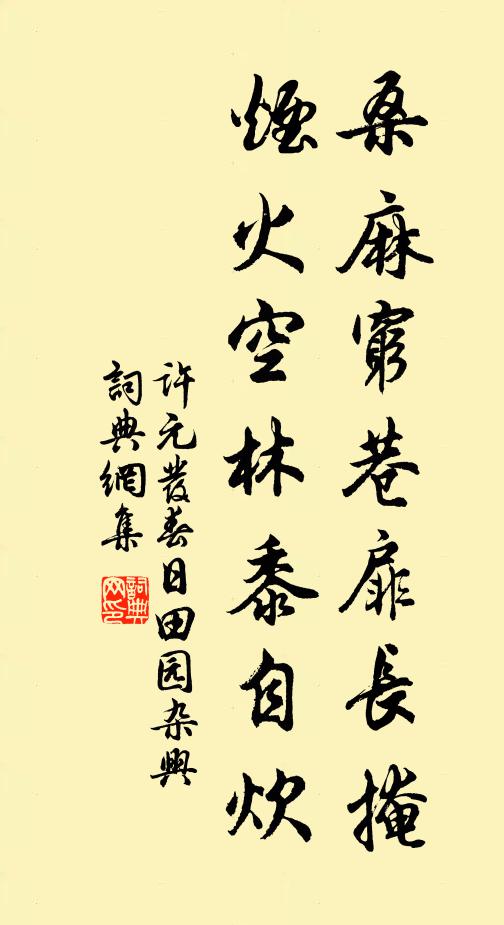 桑麻窮巷扉長掩
煙火空林黍自炊
許元發春日田园杂興
詞典網集